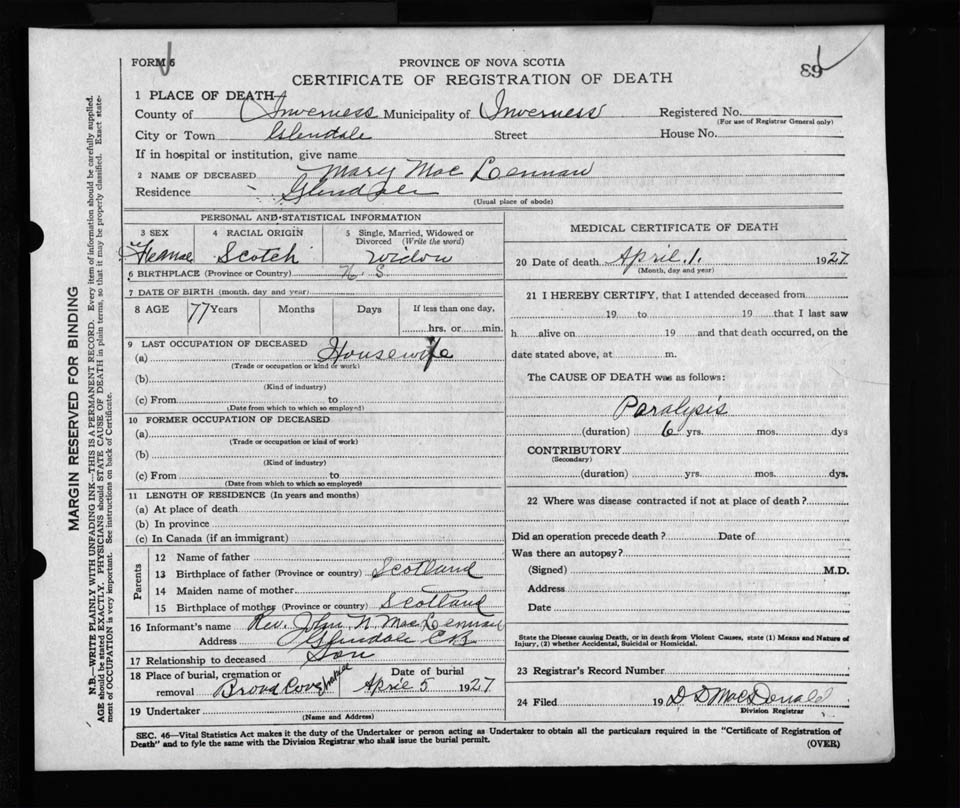 FORM 6
PROVINCE OF NOVA SCOTIA
89
CERTIFICATE OF REGISTRATION OF DEATH
1 PLACE OF DEATH
County of Inverness Municipality of Inverness Registered No.
(For use of Registrar General only)
City or Town Glendale Street House No.
If in hospital or institution, give name
2 NAME OF DECEASED Mary Mac Lennan
Residence Glendale
(Usual place of abode)
PERSONAL AND STATISTICAL INFORMATION
3 SEX 4 RACIAL ORIGIN 5 Single, Married, Widowed or Divorced (Write the word)
Female Scotch Widow
6 BIRTHPLACE (Province or Country) N. S.
7 DATE OF BIRTH (month, day and year)
8 AGE 77 Years Months Days If less than one day,
hrs. or min.
9 LAST OCCUPATION OF DECEASED
(a) Housewife
(Trade or occupation or kind of work)
(b)
(Kind of industry)
(c) From to
(Date from which to which so employed)
10 FORMER OCCUPATION OF DECEASED
(a)
(Trade or occupation or kind of work)
(b)
(Kind of industry)
(c) From to
(Date from which to which so employed)
11 LENGTH OF RESIDENCE (In years and months)
(a) At place of death
(b) In province
(c) In Canada (if an immigrant)
Parents
12 Name of father
13 Birthplace of father (Province or country) Scotland
14 Maiden name of mother
15 Birthplace of mother (Province or country) Scotland
16 Informant's name Rev. John N. MacLennan
Address Glendale C.B.
17 Relationship to deceased Son
18 Place of burial, cremation or removal Broad Cove Date of burial April 5 1927
19 Undertaker
(Name and Address)
MEDICAL CERTIFICATE OF DEATH
20 Date of death April 1. 1927
(Month, day and year)
21 I HEREBY CERTIFY, that I attended deceased from
19 to 19 that I last saw
h alive on 19 and that death occurred, on the
date stated above, at m.
The CAUSE OF DEATH was as follows:
Paralysis
(duration) 6 yrs. mos. dys
CONTRIBUTORY
(Secondary)
(duration) yrs. mos. dys.
22 Where was disease contracted if not at place of death?
Did an operation precede death? Date of
Was there an autopsy?
(Signed) M.D.
Address
Date
State the Disease causing Death, or in death from Violent Causes, state (1) Means and Nature of
Injury, (2) whether Accidental, Suicidal or Homicidal.
23 Registrar's Record Number
24 Filed 19 D D MacDonald
Division Registrar
SEC. 46—Vital Statistics Act makes it the duty of the Undertaker or person acting as Undertaker to obtain all the particulars required in the "Certificate of Registration of
Death" and to fyle the same with the Division Registrar who shall issue the burial permit.
(OVER)
MARGIN RESERVED FOR BINDING
N.B.—WRITE PLAINLY WITH UNFADING INK—THIS IS A PERMANENT RECORD. Every item of information should be carefully supplied.
AGE should be stated EXACTLY. PHYSICIANS should STATE CAUSE OF DEATH in plain terms, so that it may be properly classified. Exact state-
ment of OCCUPATION is very important. See instructions on back of Certificate.